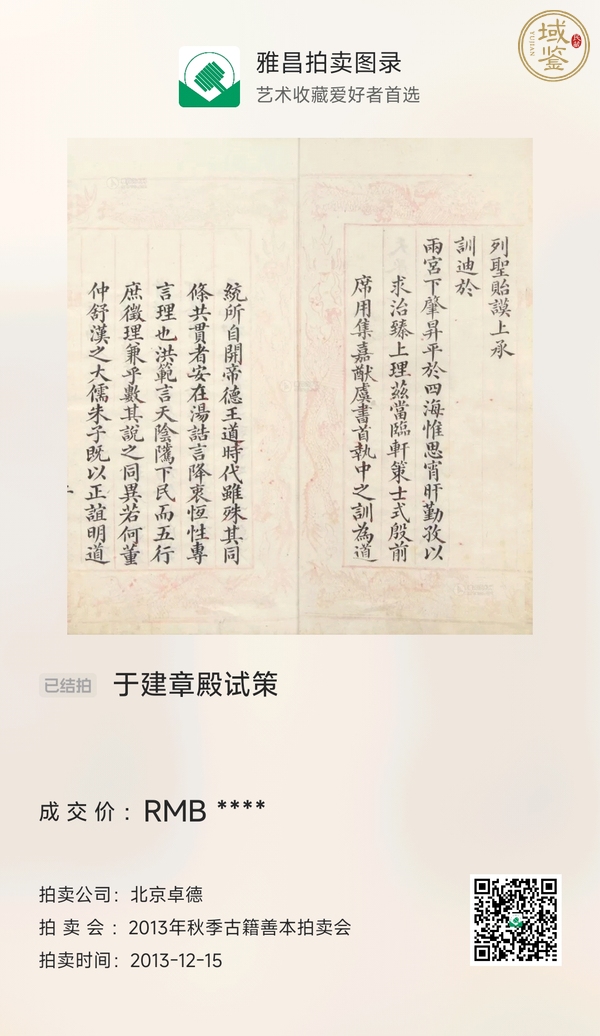 雅昌拍卖图录
艺术收藏爱好者首选
域鉴
YUJIAN
列聖貽謨上承
訓迪於
兩宮下肇昇平於四海惟思宵旰勤孜以
求治臻上理茲當臨軒策士式殷前
席用集嘉猷虞書首執中之訓為道
統所自開帝德王道時代雖殊其同
條共貫者安在湯誥言降衷恒性專
言理也洪範言天陰隲下民而五行
庶徵理兼乎數其說之同異若何董
仲舒漢之大儒朱子既以正誼明道
已结拍
于建章殿试策
成交价：RMB ****
拍卖公司：北京卓德
拍卖会：2013年秋季古籍善本拍卖会
拍卖时间：2013-12-15